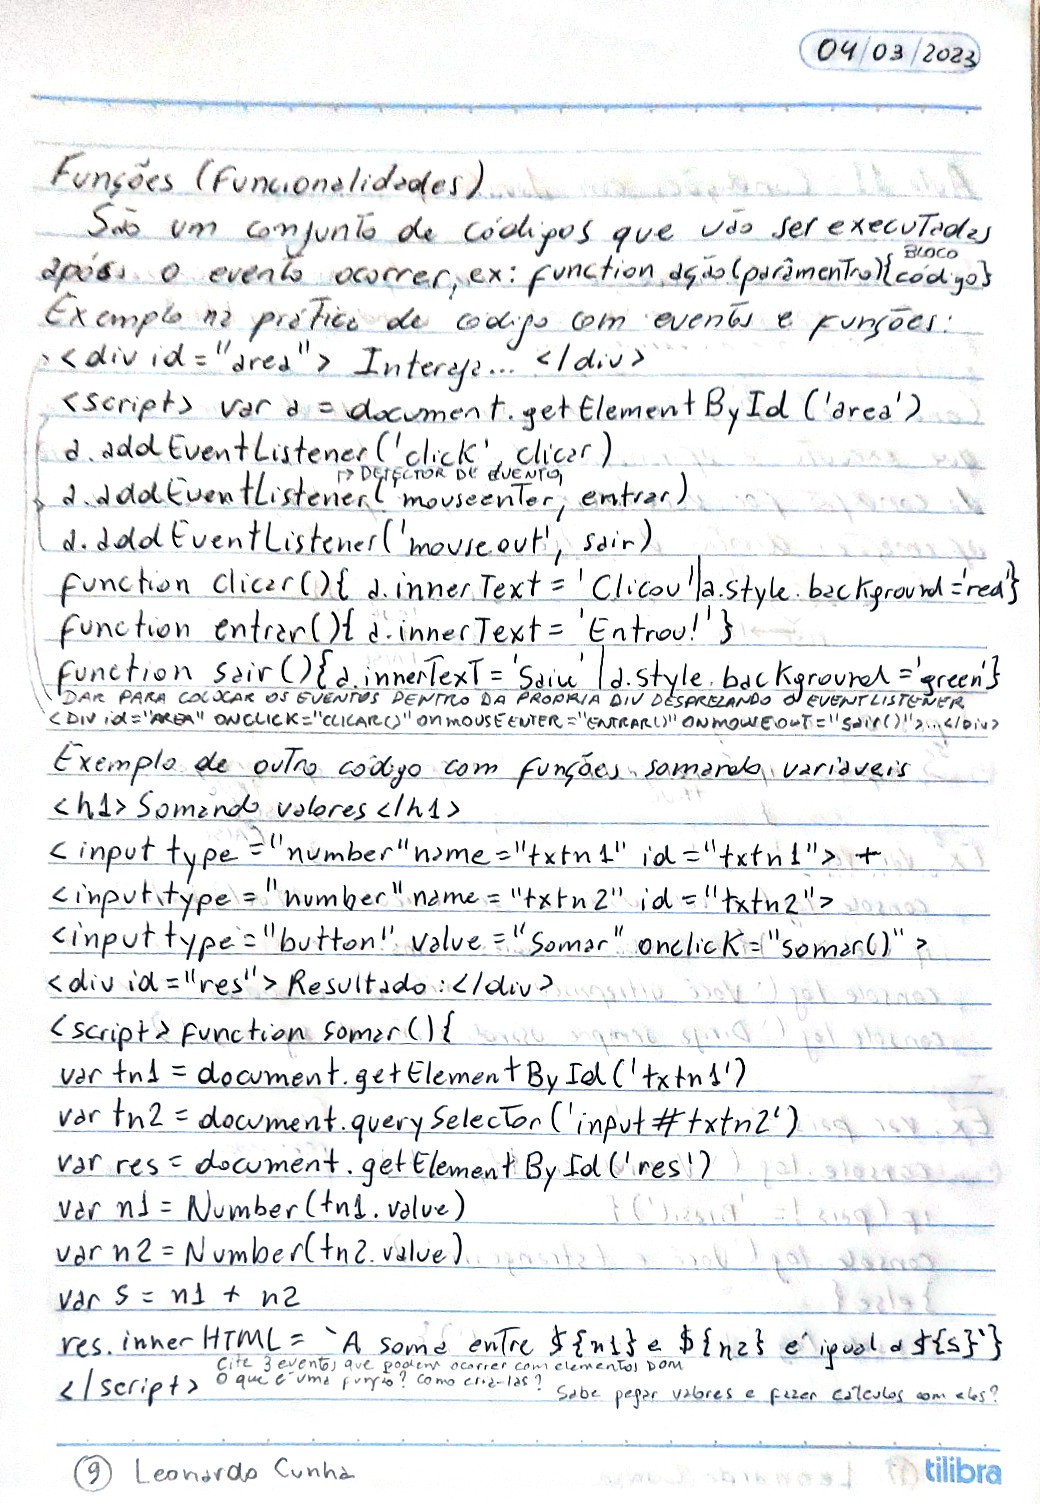 04/03/2023
Funções (Funcionalidades)
São um conjunto de códigos que vão ser executadas
BLOCO
após o evento ocorrer, ex: function ação(parâmentro){código}
Exemplo na prática de código com evento e funções:
<div id="area"> Interaja... </div>
<script> var a = document.getElementById('area')
a.addEventListener('click', clicar)
↱> DETECTOR DE EVENTO
a.addEventListener('mouseenter, entrar)
a.addEventListener('mouseout', sair)
function clicar(){ a.innerText = 'Clicou'|a.style.background='red'}
function entrar(){ a.innerText = 'Entrou!'}
function sair(){a.innerText='Saiu' |a.style.background='green'}
DAR PARA COLOCAR OS EVENTOS DENTRO DA PROPRIA DIV DESPREZANDO O EVENTLISTENER
<DIV id="AREA" ONCLICK="CLICAR()" ONMOUSEENTER="ENTRAR()" ONMOUSEOUT="Sair()">...</Div>
Exemplo de outro código com funções somando variaveis
<h1> Somando valores </h1>
<input type="number" name="txtn1" id="txtn1"> +
<input type="number" name="txtn2" id="txtn2">
<input type="button" value="Somar" onclick="somar()">
<div id="res"> Resultado:</div>
<script> function somar(){
var tn1 = document.getElementById('txtn1')
var tn2 = document.querySelector('input#txtn2')
var res = document.getElementById('res')
var n1 = Number(tn1.value)
var n2 = Number(tn2.value)
var s = n1 + n2
res.innerHTML = `A soma entre ${n1} e ${n2} é igual a ${s}`}
Cite 3 eventos que podem ocorrer com elementos DOM
</script> O que é uma função? Como criá-las?
Sabe pegar valores e fazer cálculos com eles?
9 Leonardo Cunha
tilibra